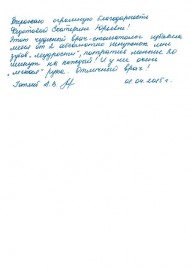 Выражаю огромную благодарность
Федотовой Екатерине Юрьевне!
Этот чудесный врач-стоматолог избавила
меня от 2 абсолютно ненужных мне
зубов "мудрости", потратив меньше 20
минут на каждый! И у неё очень
"лёгкая" рука. Отличный врач!
А.В. 01.04.2015 г.